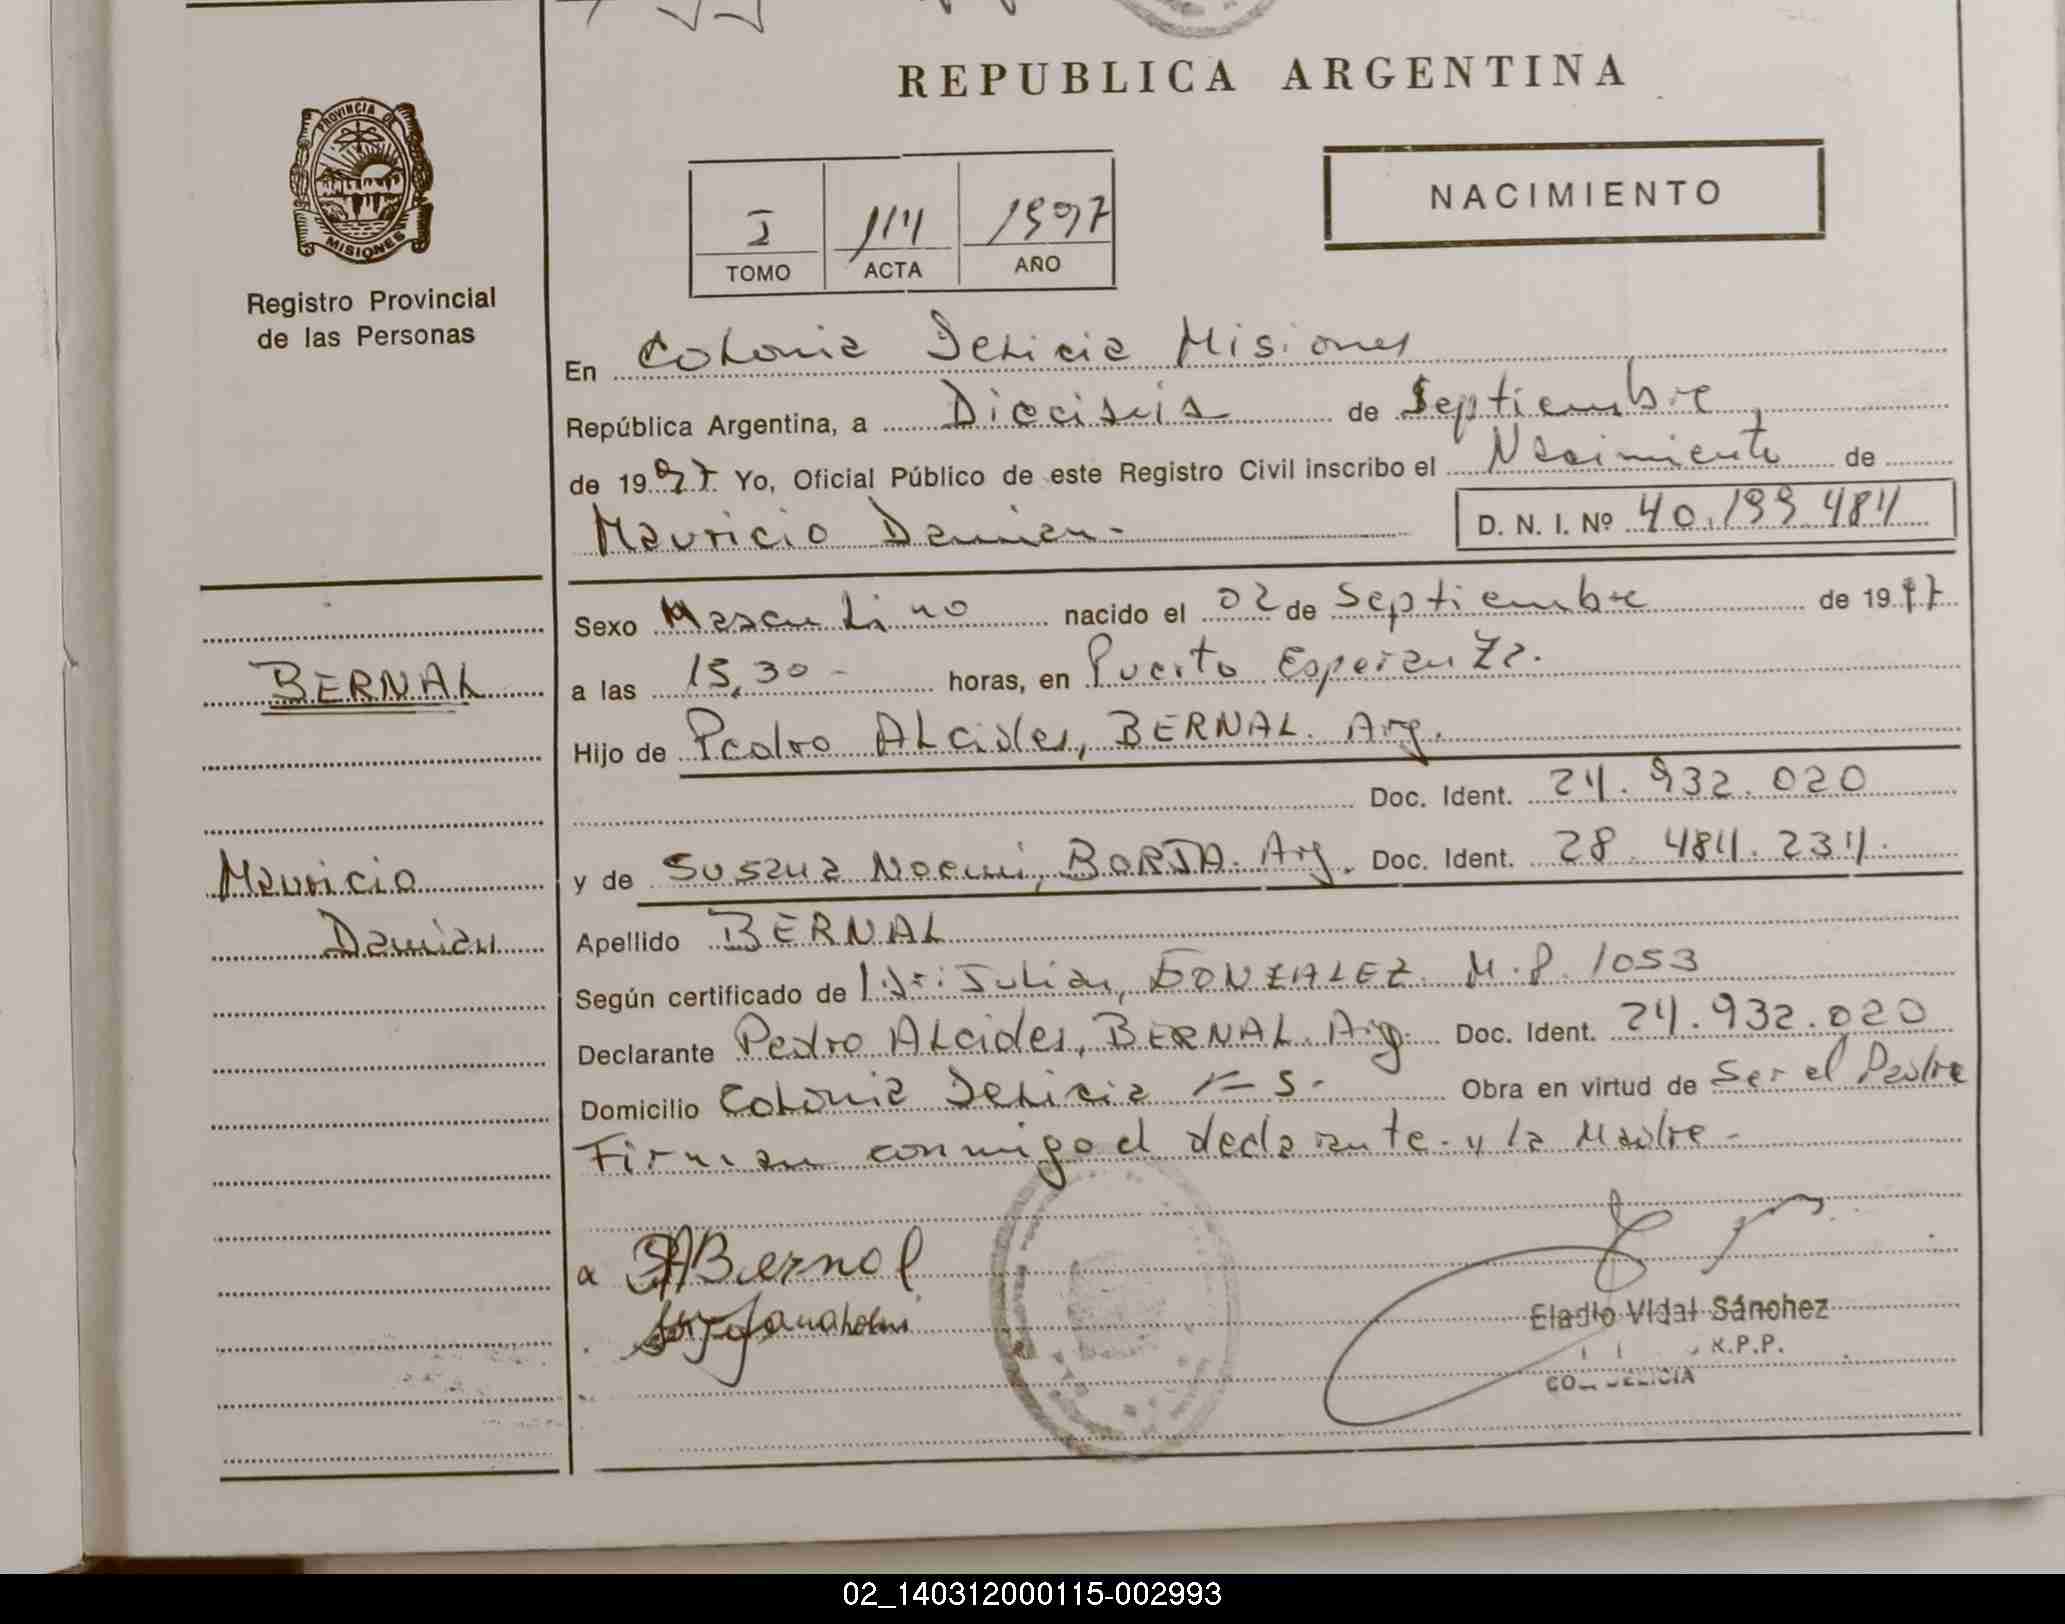 REPUBLICA ARGENTINA
PROVINCIA DE
MISIONES
Registro Provincial
de las Personas
NACIMIENTO
I 114 1997
TOMO ACTA AÑO
En Colonia Delicia Misiones
República Argentina, a Dieciseis de Septiembre
de 1997 Yo, Oficial Público de este Registro Civil inscribo el Nacimiento de
Mauricio Damian- D. N. I. Nº 40.199.484
Sexo Masculino nacido el 02 de Septiembre de 1997
BERNAL
a las 15,30- horas, en Puerto Esperanza.
Hijo de Pedro ALcides, BERNAL. Arg.
Doc. Ident. 24.932.020
Mauricio
y de Susana Noemi, BORJA. Arg. Doc. Ident. 28.484.234.
Damian
Apellido BERNAL
Según certificado de Julian, GONZALEZ. M.P. 1053
Declarante Pedro ALcides, BERNAL. Arg. Doc. Ident. 24.932.020
Domicilio Colonia Delicia Obra en virtud de Ser el Padre
Firman conmigo el declarante y la Madre-
Bernal
Eladio Vidal Sánchez
COL. DELICIA
02_140312000115-002993